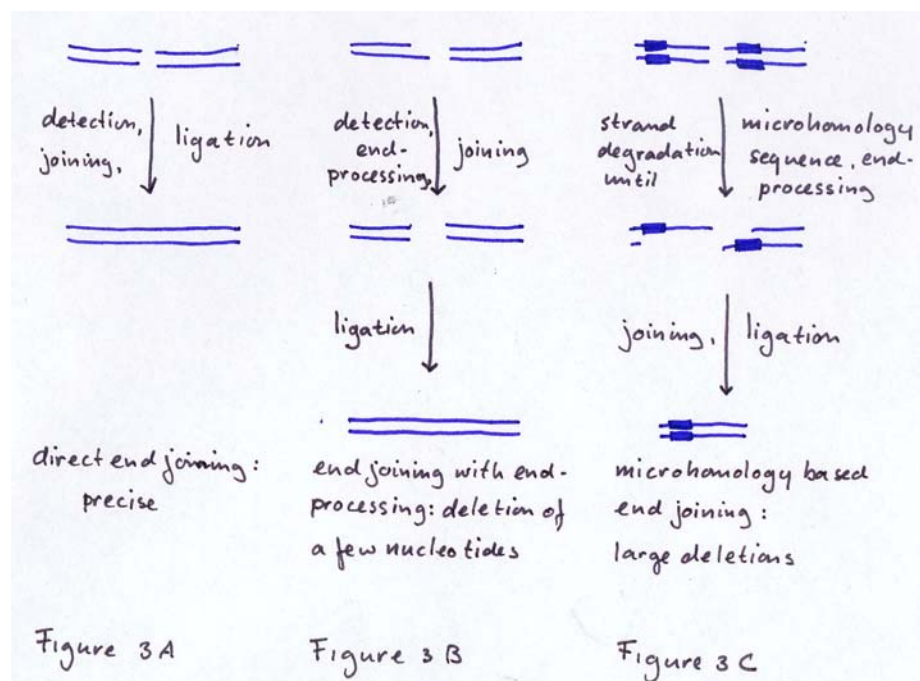 detection,
joining,
ligation
direct end joining:
precise
Figure 3A
detection,
end-
processing,
joining
ligation
end joining with end-
processing: deletion of
a few nucleotides
Figure 3B
strand
degradation
until
microhomology
sequence, end-
processing
joining,
ligation
microhomology based
end joining:
large deletions
Figure 3C